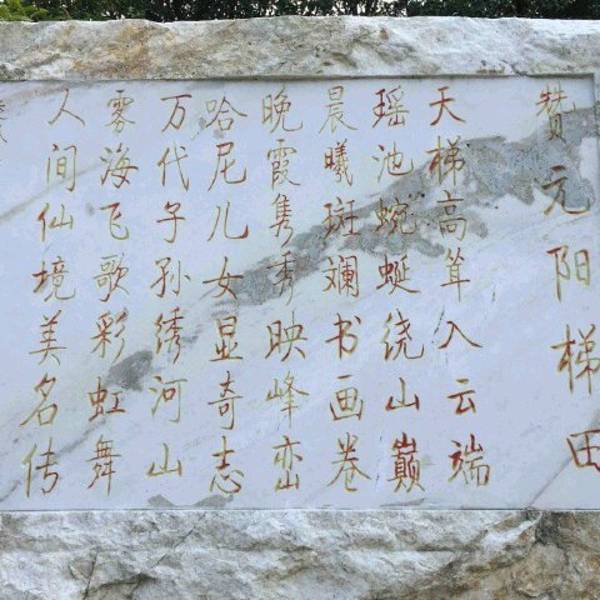 赞元阳梯田
天梯高耸入云端
瑶池蜿蜒绕山巅
晨曦斑斓书画卷
晚霞隽秀映峰峦
哈尼儿女显奇志
万代子孙绣河山
雾海飞歌彩虹舞
人间仙境美名传